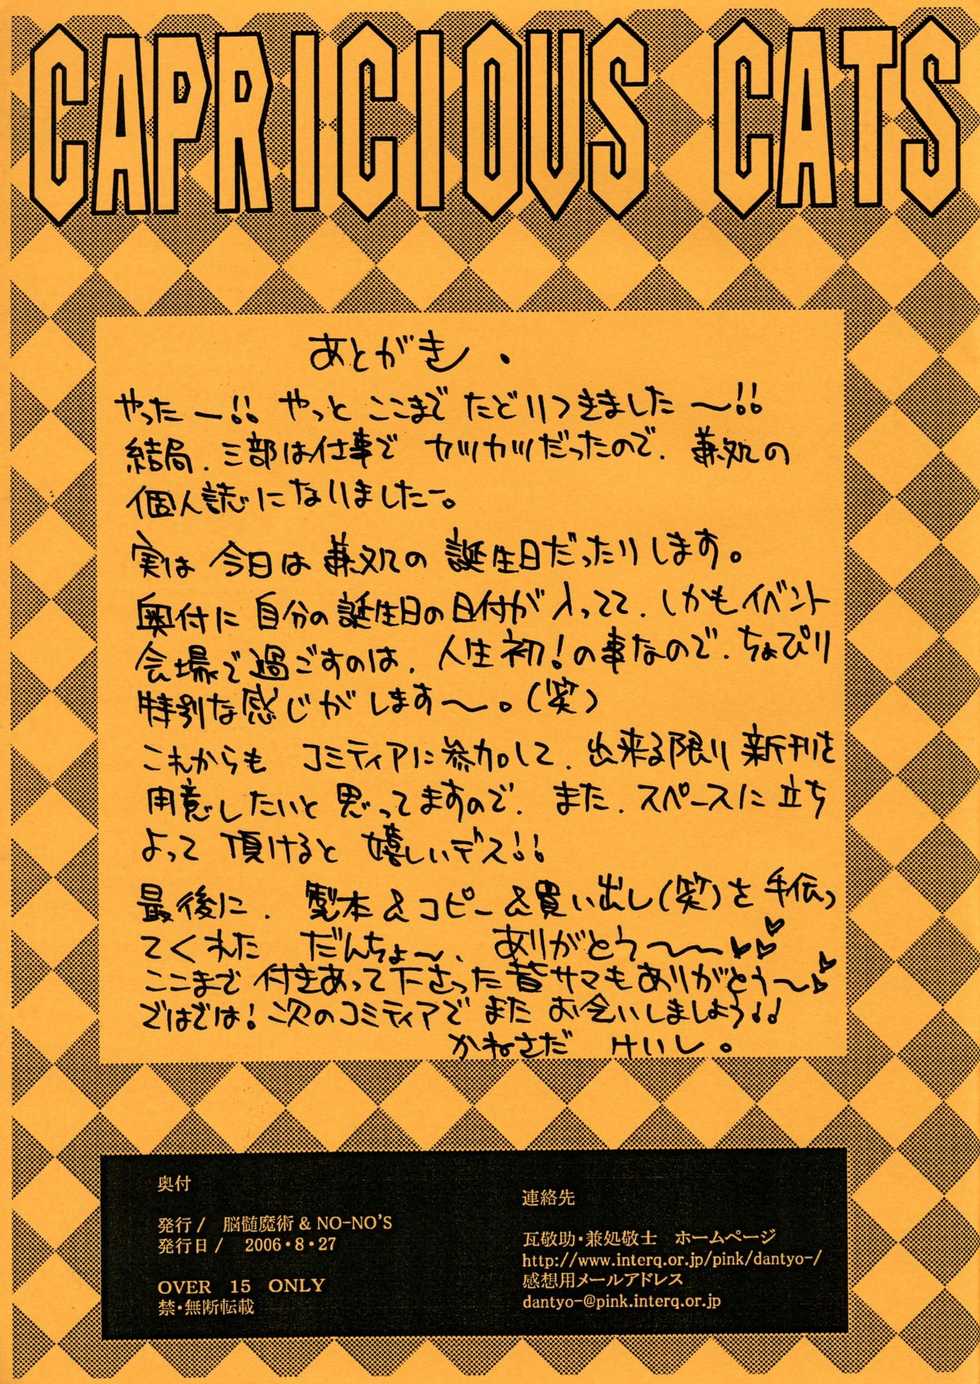 CAPRICIOUS CATS
あとがき.
やったー!! やっと ここまで たどりつきました〜!!
結局、三部は仕事で カツカツだったので、兼処の
個人誌になりましたー。
実は 今日は 兼処の 誕生日だったりします。
奥付に 自分の誕生日の日付が入ってて、しかもイベント
会場で過ごすのは、人生初!の事なので、ちょぴり
特別な感じがします〜。(笑)
これからも コミティアに参加して、出来る限り新刊を
用意したいと思ってますので、また、スペースに立ち
よって 頂けると 嬉しいデス!!
最後に、製本&コピー&買い出し(笑)を手伝っ
てくれた だんちょ〜、ありがとう〜〜♥♥
ここまで付きあって下さった皆サマもありがとう〜♥
ではでは!次のコミティアで また お会いしましょう!!
かねさだ けいし。
奥付
発行/ 脳髄魔術 & NO-NO'S
発行日/ 2006・8・27
OVER 15 ONLY
禁・無断転載
連絡先
瓦敬助・兼処敬士 ホームページ
http://www.interq.or.jp/pink/dantyo-/
感想用メールアドレス
dantyo-@pink.interq.or.jp